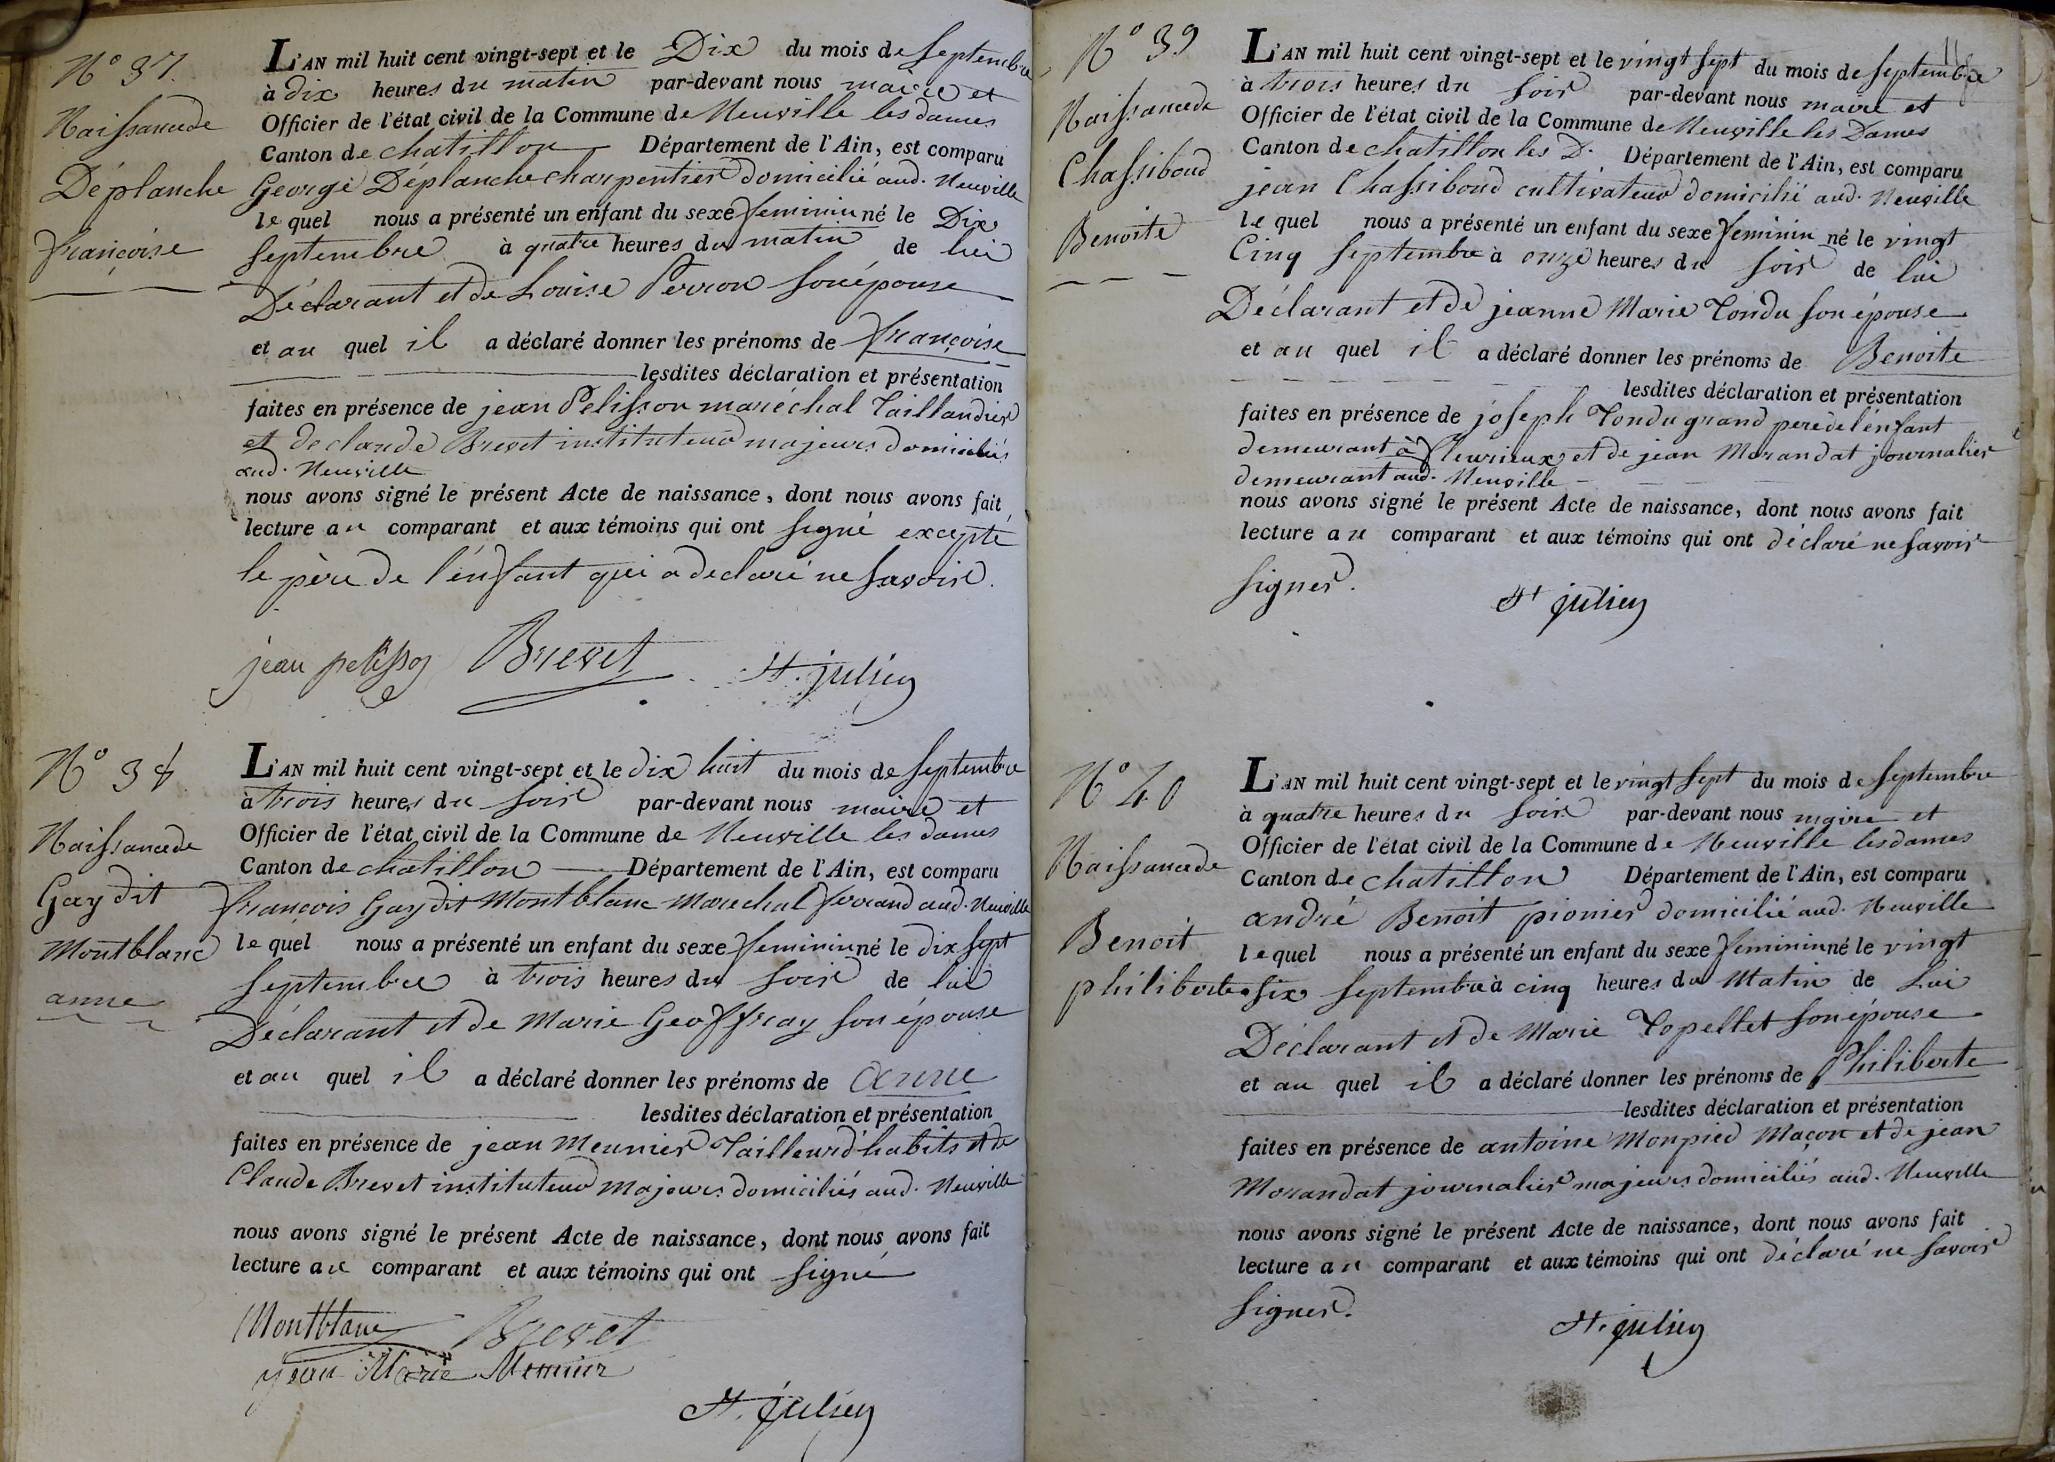 N° 37.
Naissance de
Déplanche
françoise
L'AN mil huit cent vingt-sept et le Dix du mois de septembre
à dix heures du matin par-devant nous maire et
Officier de l'état civil de la Commune de Neuville les dames
Canton de chatillon Département de l'Ain, est comparu
George Déplanche charpentier domicilié aud. Neuville
lequel nous a présenté un enfant du sexe feminin né le Dix
septembre à quatre heures du matin de lui
Déclarant et de Louise Perron son épouse
et au quel il a déclaré donner les prénoms de françoise
lesdites déclaration et présentation
faites en présence de jean Pelisson maréchal Taillandier
et de claude Brevet instituteur majeurs domiciliés
aud. Neuville
nous avons signé le présent Acte de naissance, dont nous avons fait
lecture au comparant et aux témoins qui ont signé excepté
le père de l'énfant qui a declaré ne savoir.
jean pelisson Brevet St. julien
N° 38.
Naissance de
Gay dit
Montblanc
anne
L'AN mil huit cent vingt-sept et le dix huit du mois de septembre
à trois heures du soir par-devant nous maire et
Officier de l'état civil de la Commune de Neuville les dames
Canton de chatillon Département de l'Ain, est comparu
françois Gay dit Montblanc marechal ferrand aud. Neuville
lequel nous a présenté un enfant du sexe feminin né le dix sept
septembre à trois heures du soir de lui
Déclarant et de Marie Geoffray son épouse
et au quel il a déclaré donner les prénoms de anne
lesdites déclaration et présentation
faites en présence de jean Meunier Tailleur d'habits et de
Claude Brevet instituteur majeurs domiciliés aud. Neuville
nous avons signé le présent Acte de naissance, dont nous avons fait
lecture au comparant et aux témoins qui ont signé
Montblanc Brevet
jean Marie Meunier
St. julien
N° 39
Naissance de
Chassiboud
Benoite
L'AN mil huit cent vingt-sept et le vingt sept du mois de septembre
à trois heures du soir par-devant nous maire et
Officier de l'état civil de la Commune de Neuville les Dames
Canton de chatillon les D. Département de l'Ain, est comparu
jean Chassiboud cultivateur domicilié aud. Neuville
lequel nous a présenté un enfant du sexe feminin né le vingt
Cinq septembre à onze heures du soir de lui
Déclarant et de jeanne Marie Tondu son épouse
et au quel il a déclaré donner les prénoms de Benoite
lesdites déclaration et présentation
faites en présence de joseph Tondu grand pere de l'énfant
demeurant à fleurieux et de jean Morandat journalier
demeurant aud. Neuville
nous avons signé le présent Acte de naissance, dont nous avons fait
lecture au comparant et aux témoins qui ont déclaré ne savoir
signer.
St julien
N° 40
Naissance de
Benoit
philiberte
L'AN mil huit cent vingt-sept et le vingt sept du mois de septembre
à quatre heures du soir par-devant nous maire et
Officier de l'état civil de la Commune de Neuville les dames
Canton de chatillon Département de l'Ain, est comparu
andré Benoit pionier domicilié aud. Neuville
lequel nous a présenté un enfant du sexe feminin né le vingt
six septembre à cinq heures du Matin de Lui
Déclarant et de Marie Topellet son épouse
et au quel il a déclaré donner les prénoms de Philiberte
lesdites déclaration et présentation
faites en présence de antoine Monpied Maçon et de jean
Morandat journalier majeurs domiciliés aud. Neuville
nous avons signé le présent Acte de naissance, dont nous avons fait
lecture au comparant et aux témoins qui ont déclaré ne savoir
signer.
St. julien